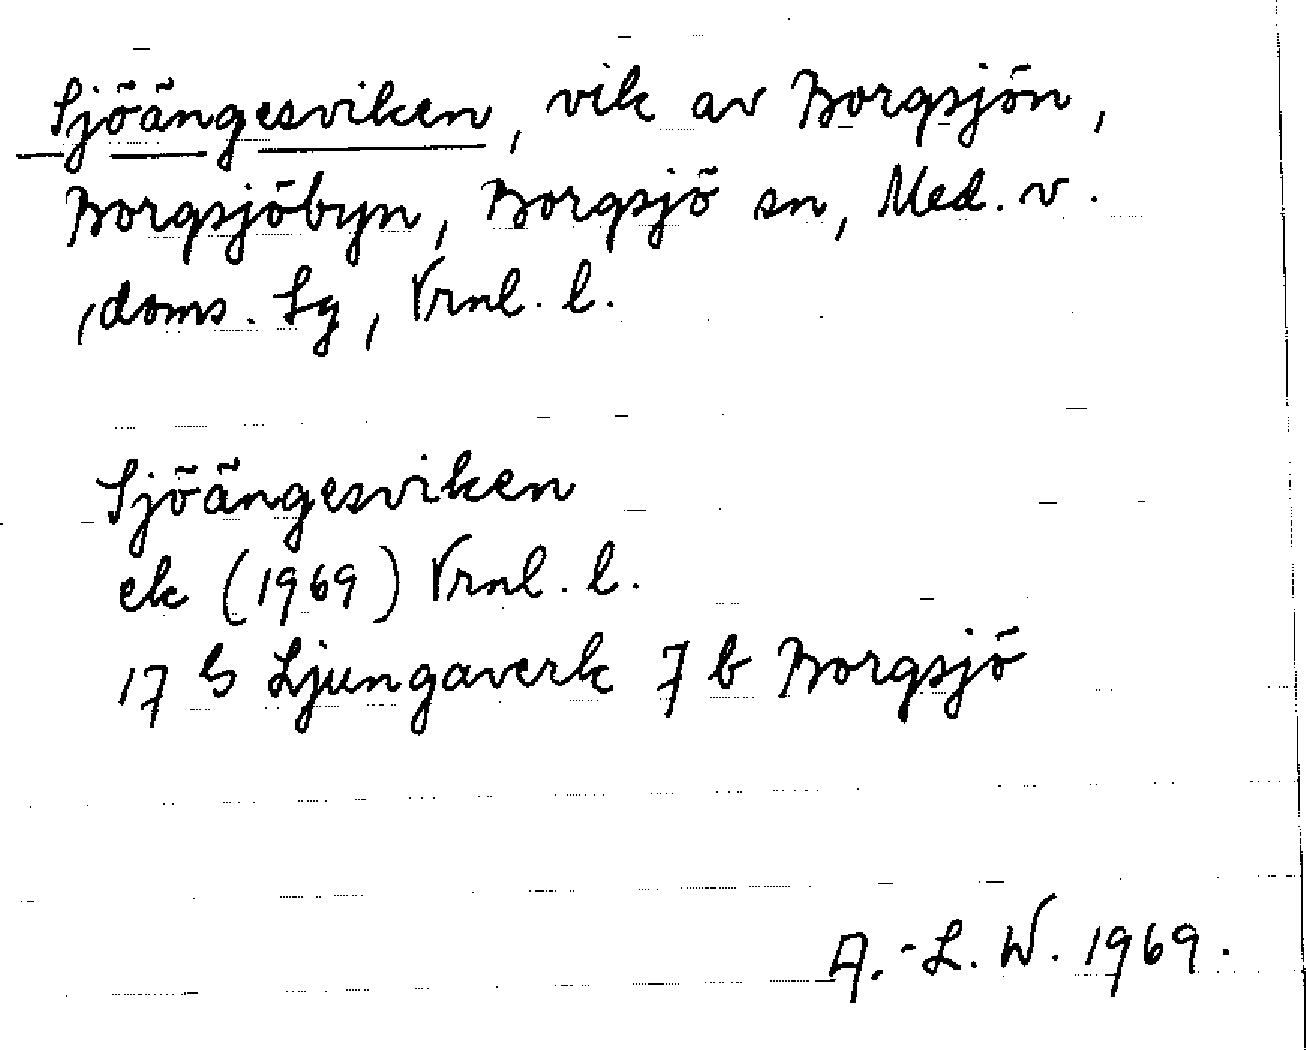 Sjöängesviken, vik av Borgsjön,
Borgsjöbyn, Borgsjö sn, Med. v.
doms. Lg, Vrnl. l.
Sjöängesviken
ek (1969) Vrnl. l.
17 G Ljungaverk 7 b Borgsjö
A.-L. W. 1969.